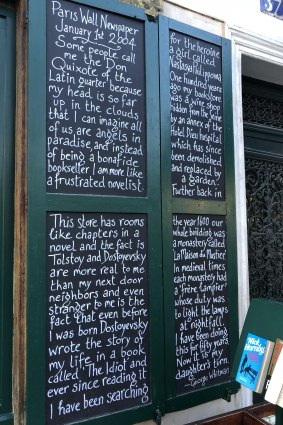 Paris Wall Newspaper
January 1st 2004.
Some people call
me the Don
Quixote of the
Latin Quarter because
my head is so far
up in the clouds
that I can imagine all
of us are angels in
paradise, and instead
of being a bonafide
bookseller I am more like
a frustrated novelist.
This store has rooms
like chapters in a
novel and the fact is
Tolstoy and Dostoyevsky
are more real to me
than my next door
neighbors and even
stranger to me is the
fact that even before
I was born Dostoyevsky
wrote the story of
my life in a book
called 'The Idiot' and
ever since reading it
I have been searching
for the heroine,
a girl called
Nastasia Filipovna.
One hundred years
ago my bookstore
was a wine shop
hidden from the Seine
by an annex of the
Hotel Dieu hospital
which has since
been demolished
and replaced by
a garden.
Further back in
the year 1600 our
whole building was
a monastery called
'La Maison du Mustier'
In medieval times
each monastery had
a 'frère lampier'
whose duty was
to light the lamps
at nightfall.
I have been doing
this for fifty years.
Now it is my
daughter's turn.
-George Whitman
37